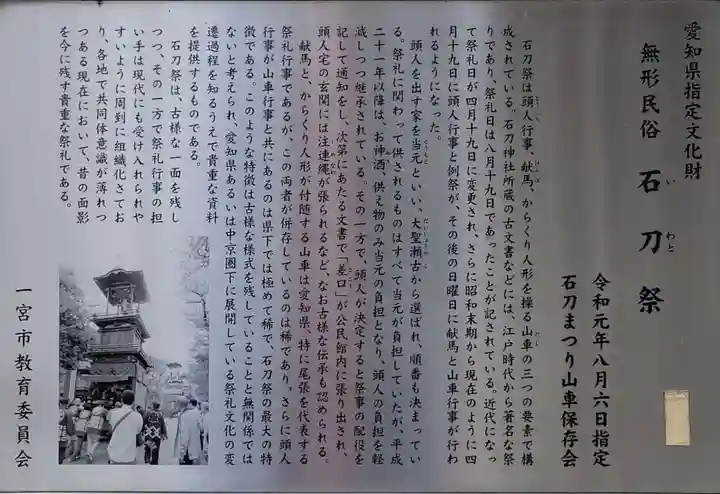 愛知県指定文化財
無形民俗 石刀祭
いわと
令和元年八月六日指定
石刀まつり山車保存会
石刀祭は頭人行事、献馬、からくり人形を操る山車の三つの要素で構
成されている。石刀神社所蔵の古文書などには、江戸時代から著名な祭
りであり、祭礼日は八月十九日であったことが記されている。近代になっ
て祭礼日が四月十九日に変更され、さらに昭和末期から現在のように四
月十九日に頭人行事と例祭が、その後の日曜日に献馬と山車行事が行わ
れるようになった。
頭人を出す家を当元といい、大聖瀬古から選ばれ、順番も決まってい
る。祭礼に関わって供されるものはすべて当元が負担していたが、平成
二十一年以降は、お神酒、供え物のみ当元の負担となり、頭人の負担を軽
減しつつ継承されている。その一方で、頭人が決定すると祭事の配役を
記して通知をし、次第にあたる文書で「差口」が公民館内に張り出され、
頭人宅の玄関には注連縄が張られるなど、なお古様な伝承も認められる。
献馬と、からくり人形が付随する山車は愛知県、特に尾張を代表する
祭礼行事であるが、この両者が併存しているのは稀であり、さらに頭人
行事が山車行事と共にあるのは県下では極めて稀で、石刀祭の最大の特
徴である。このような特徴は古様な様式を残していることと無関係では
ないと考えられ、愛知県あるいは中京圏下に展開している祭礼文化の変
遷過程を知るうえで貴重な資料
を提供するものである。
石刀祭は、古様な一面を残し
つつ、その一方で祭礼行事の担
い手は現代にも受け入れられや
すいように周到に組織化さてお
り、各地で共同体意識が薄れつ
つある現在において、昔の面影
を今に残す貴重な祭礼である。
一宮市教育委員会